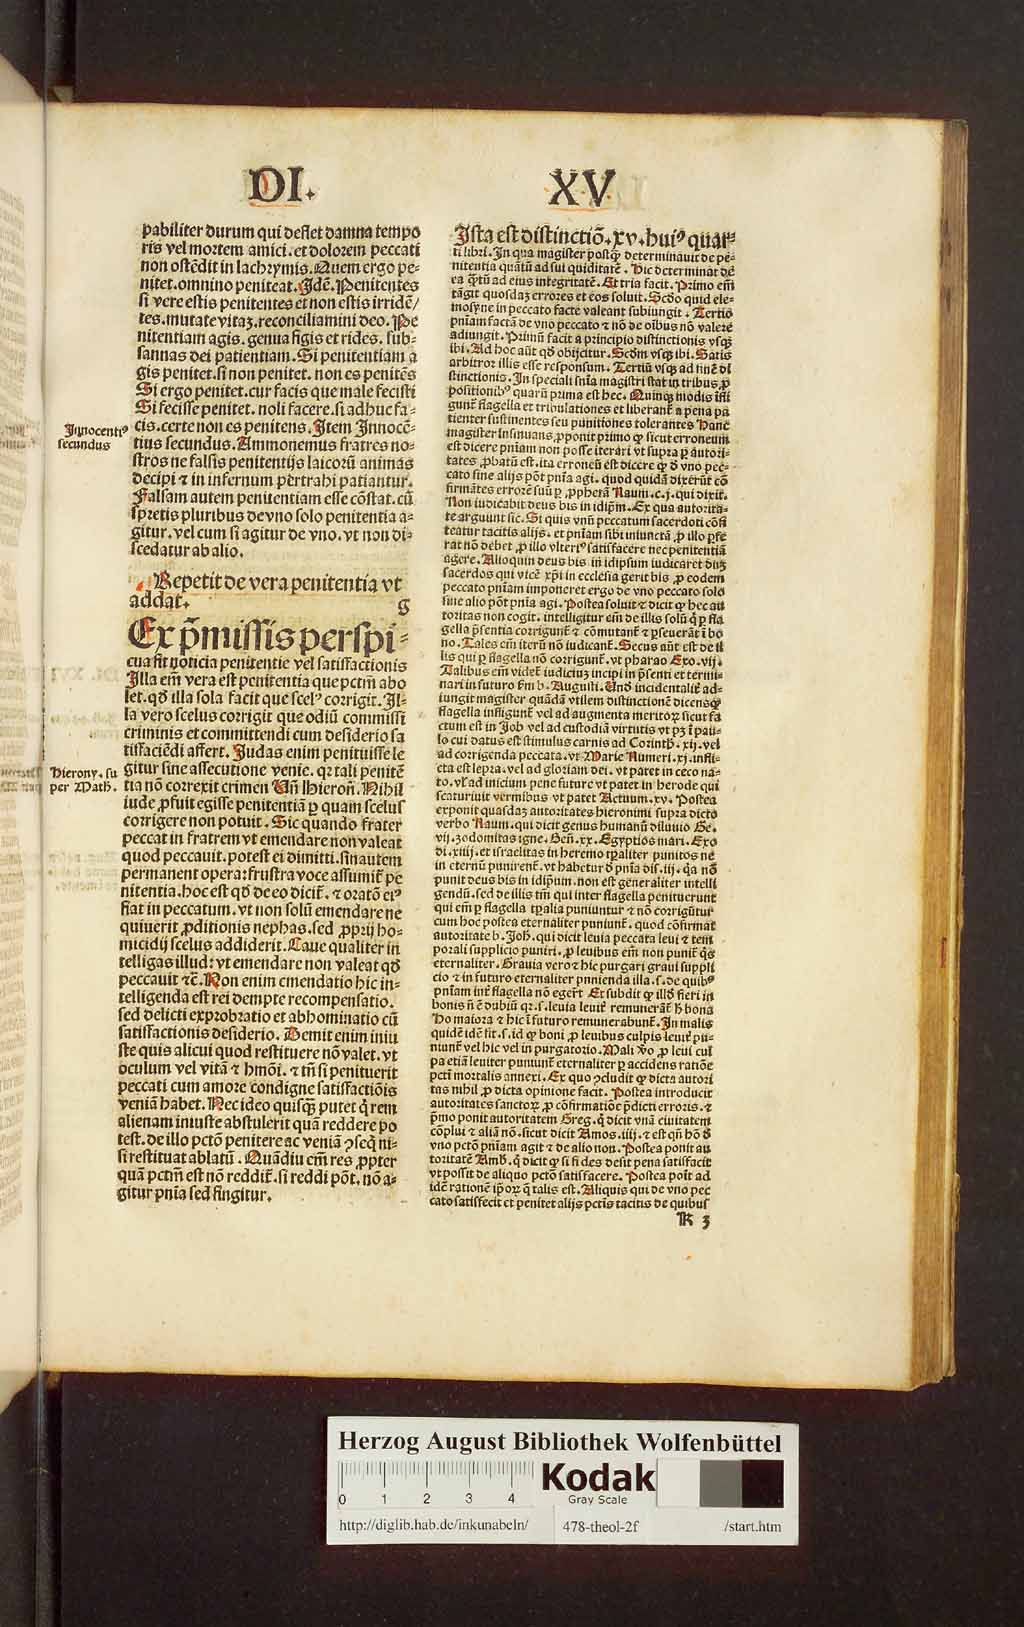 DI. XV
pabiliter durum qui deflet damna tempo
ris vel mortem amici. et dolorem peccati
non ostēdit in lachrymis. Quem ergo pe-
nitet. omnino peniteat. Idē. Penitentes
si vere estis penitentes et non estis irridē/
tes. mutate vitaz. reconciliamini deo. Pe
nitentiam agis. genua figis et rides. sub-
sannas dei patientiam. Si penitentiam a
gis penitet. si non penitet. non es penitēs
Si ergo penitet. cur facis que male fecisti
Si fecisse penitet. noli facere. si adhuc fa-
Innocentiꝰ
secundus
cis. certe non es penitens. Item Innocē-
tius secundus. Ammonemus fratres no-
stros ne falsis penitentijs laicorū animas
decipi ⁊ in infernum pertrahi patiantur.
Falsam autem penitentiam esse cōstat. cū
spretis pluribus de vno solo penitentia a-
gitur. vel cum si agitur de vno. vt non di-
scedatur ab alio.
Repetit de vera penitentia vt
addat. g
Ex p̄missis perspi-
cua fit noticia penitentie vel satisfactionis
Illa em̄ vera est penitentia que pctm̄ abo
let. qd̄ illa sola facit que scelꝰ corrigit. Il-
la vero scelus corrigit que odiū commissi
criminis et committendi cum desiderio sa
tisfaciēdi affert. Judas enim penituisse le
Hierony. su
per Math.
gitur sine assecutione venie. qꝛ tali penitē
tia nō correxit crimen Vn̄ Hieron̄. Nihil
iude ꝓfuit egisse penitentiā ꝑ quam scelus
corrigere non potuit. Sic quando frater
peccat in fratrem vt emendare non valeat
quod peccauit. potest ei dimitti. sin autem
permanent opera: frustra voce assumit̄ pe
nitentia. hoc est qd̄ de eo dicit̄. ⁊ oratō eiꝰ
fiat in peccatum. vt non solū emendare ne
quiuerit ꝓditionis nephas. sed ꝓprij ho-
micidij scelus addiderit. Caue qualiter in
telligas illud: vt emendare non valeat qd̄
peccauit ⁊c̄. Non enim emendatio hic in-
telligenda est rei dempte recompensatio.
sed delicti exprobratio et abhominatio cū
satisfactionis desiderio. Demit enim iniu
ste quis alicui quod restituere nō valet. vt
oculum vel vitā ⁊ hmōi. ⁊ tn̄ si penituerit
peccati cum amore condigne satisfactiōis
veniā habet. Nec ideo quisqꝫ putet q̄ rem
alienam iniuste abstulerit quā reddere po
test. de illo pctō penitere ac veniā ꝯseq̄ ni-
si restituat ablatū. Quādiu em̄ res ꝓpter
quā pctm̄ est nō reddit̄. si reddi pōt. nō a-
gitur pn̄ia sed fingitur.
Ista est distinctiō. xv. huiꝰ quar-
ti libri. In qua magister postqꝫ determinauit de pe-
nitentia quātū ad sui quiditatē. Hic determinat de
ea q̄tū ad eius integritatē. Et tria facit. Primo em̄
tāgit quosdaz errores et eos soluit. Scd̄o quid ele-
mosyne in peccato facte valeant subiungit. Tertio
pn̄iam factā de vno peccato ⁊ nō de oībus nō valere
adiungit. Primū facit a principio distinctionis vsqꝫ
ibi. Ad hoc aūt qd̄ obijcitur. Scd̄m vsqꝫ ibi. Satis
arbitror illis esse responsum. Tertiū vsqꝫ ad finē di
stinctionis. In speciali sn̄ia magistri stat in tribus ꝓ
positionibꝰ quarū prima est hec. Quinqꝫ modis infli
gunt̄ flagella et tribulationes et liberant̄ a pena pa
tienter sustinentes seu punitiones tolerantes Hanc
magister insinuans ꝓponit primo ꝙ sicut erroneum
est dicere pn̄iam non posse iterari vt supra ꝑ autori-
tates ꝓbatū est. ita erroneū est dicere ꝙ d̄ vno pec-
cato sine alijs pōt pn̄ia agi. quod quidā dixerūt cō
firmātes errorē suū ꝑ ꝓpherā Naum. c. j. qui dixit.
Non iudicabit deus bis in idip̄m. Ex qua autorita-
te arguunt sic. Si quis vnū peccatum sacerdoti cōfi
teatur tacitis alijs. et pn̄iam sibi iniunctā ꝓ illo ꝑfe
rat nō debet ꝓ illo vlteriꝰ satisfacere nec penitentiā
agere. Alioquin deus bis in idipsum iudicaret dūz
sacerdos qui vicē xp̄i in ecclesia gerit bis ꝓ eodem
peccato pn̄iam imponeret ergo de vno peccato solo
sine alio pōt pn̄ia agi. Postea soluit ⁊ dicit ꝙ hec au
toritas non cogit. intelligitur em̄ de illis solū q̄ ꝑ fla
gella p̄sentia corrigunt̄ ⁊ cōmutant̄ ⁊ ꝑseuerāt ī bo
no. Tales em̄ iterū nō iudicant̄. Secus aūt est de il
lis qui ꝑ flagella nō corrigunt̄. vt pharao Exo. vij.
Talibus em̄ videt̄ iudiciuz incipi in p̄senti et termi-
nari in futuro fm̄ b. Augusti. Vnd̄ incidentalit̄ ad-
iungit magister quādā vtilem distinctionē dicens ꝙ
flagella infligunt̄ vel ad augmenta meritoꝝ sicut fa
ctum est in Job vel ad custodiā virtutis vt pꝫ ī pau-
lo cui datus est stimulus carnis ad Corinth. xij. vel
ad corrigenda peccata. vt Marie Numeri. xj. infli-
cta est lepra. vel ad gloriam dei. vt patet in ceco na-
to. vl̄ ad inicium pene future vt patet in herode qui
scaturiuit vermibus vt patet Actuum. xv. Postea
exponit quasdaz autoritates hieronimi supra dicto
verbo Naum. qui dicit genus humanū diluuio Ge.
vij. zodomitas igne. Gen̄. xx. Egyptios mari. Exo
di. xiiij. et israelitas in heremo tp̄aliter punitos ne
in eternū punirent̄. vt habetur d̄ pn̄ia dis. iij. q̄a nō
punit deus bis in idip̄um. non est generaliter intelli
gendū. sed de illis tm̄ qui inter flagella penituerunt
qui em̄ ꝑ flagella tp̄alia puniuntur ⁊ nō corrigūtur
cum hoc postea eternaliter puniunt̄. quod cōfirmat
autoritate b. Joh̄. qui dicit leuia peccata leui ⁊ tem
porali supplicio puniri. ꝓ leuibus em̄ non punit̄ q̄s
eternaliter. Grauia vero ⁊ hic purgari graui suppli
cio ⁊ in futuro eternaliter pnnienda illa. s. de quibꝰ
pn̄iam int̄ flagella nō eger̄t Et subdit ꝙ illd̄ fieri in
bonis n̄ ē dubiū qꝛ. s. leuia leuit̄ remunerāt̄ h̄ bona
Ho maiora ⁊ hic ī futuro remunerabunt̄. In malis
quidē idē fit. s. id ꝙ boni ꝓ leuibus culpis leuit̄ pu-
niunt̄ vel hic vel in purgatorio. Mali v̄o ꝓ leui cul
pa etiā leuiter puniunt̄ eternaliter ꝑ accidens ratiōe
pcti mortalis annexi. Ex quo ꝯcludit ꝙ dicta autori
tas nihil ꝓ dicta opinione facit. Postea introducit
autoritates sanctoꝝ ꝓ cōfirmatiōe p̄dicti erroris. ⁊
p̄mo ponit autoritatem Greg. q̄ dicit vnā ciuitatem
cōplui ⁊ aliā nō. sicut dicit Amos. iiij. ⁊ est qn̄ hō d̄
vno pctō pn̄iam agit ⁊ de alio non. Postea ponit au
toritatē Amb̄. q̄ dicit ꝙ si fides desit pena satisfacit
vt possit de aliquo pctō satisfacere. Postea post ad
idē rationē ip̄oꝝ q̄ talis est. Aliquis qui de vno pec
cato satisfecit et penitet alijs pctis tacitis de quibus
K 3
Herzog August Bibliothek Wolfenbüttel
0 1 2 3 4
Kodak
Gray Scale
http://diglib.hab.de/inkunabeln/ 478-theol-2f /start.htm